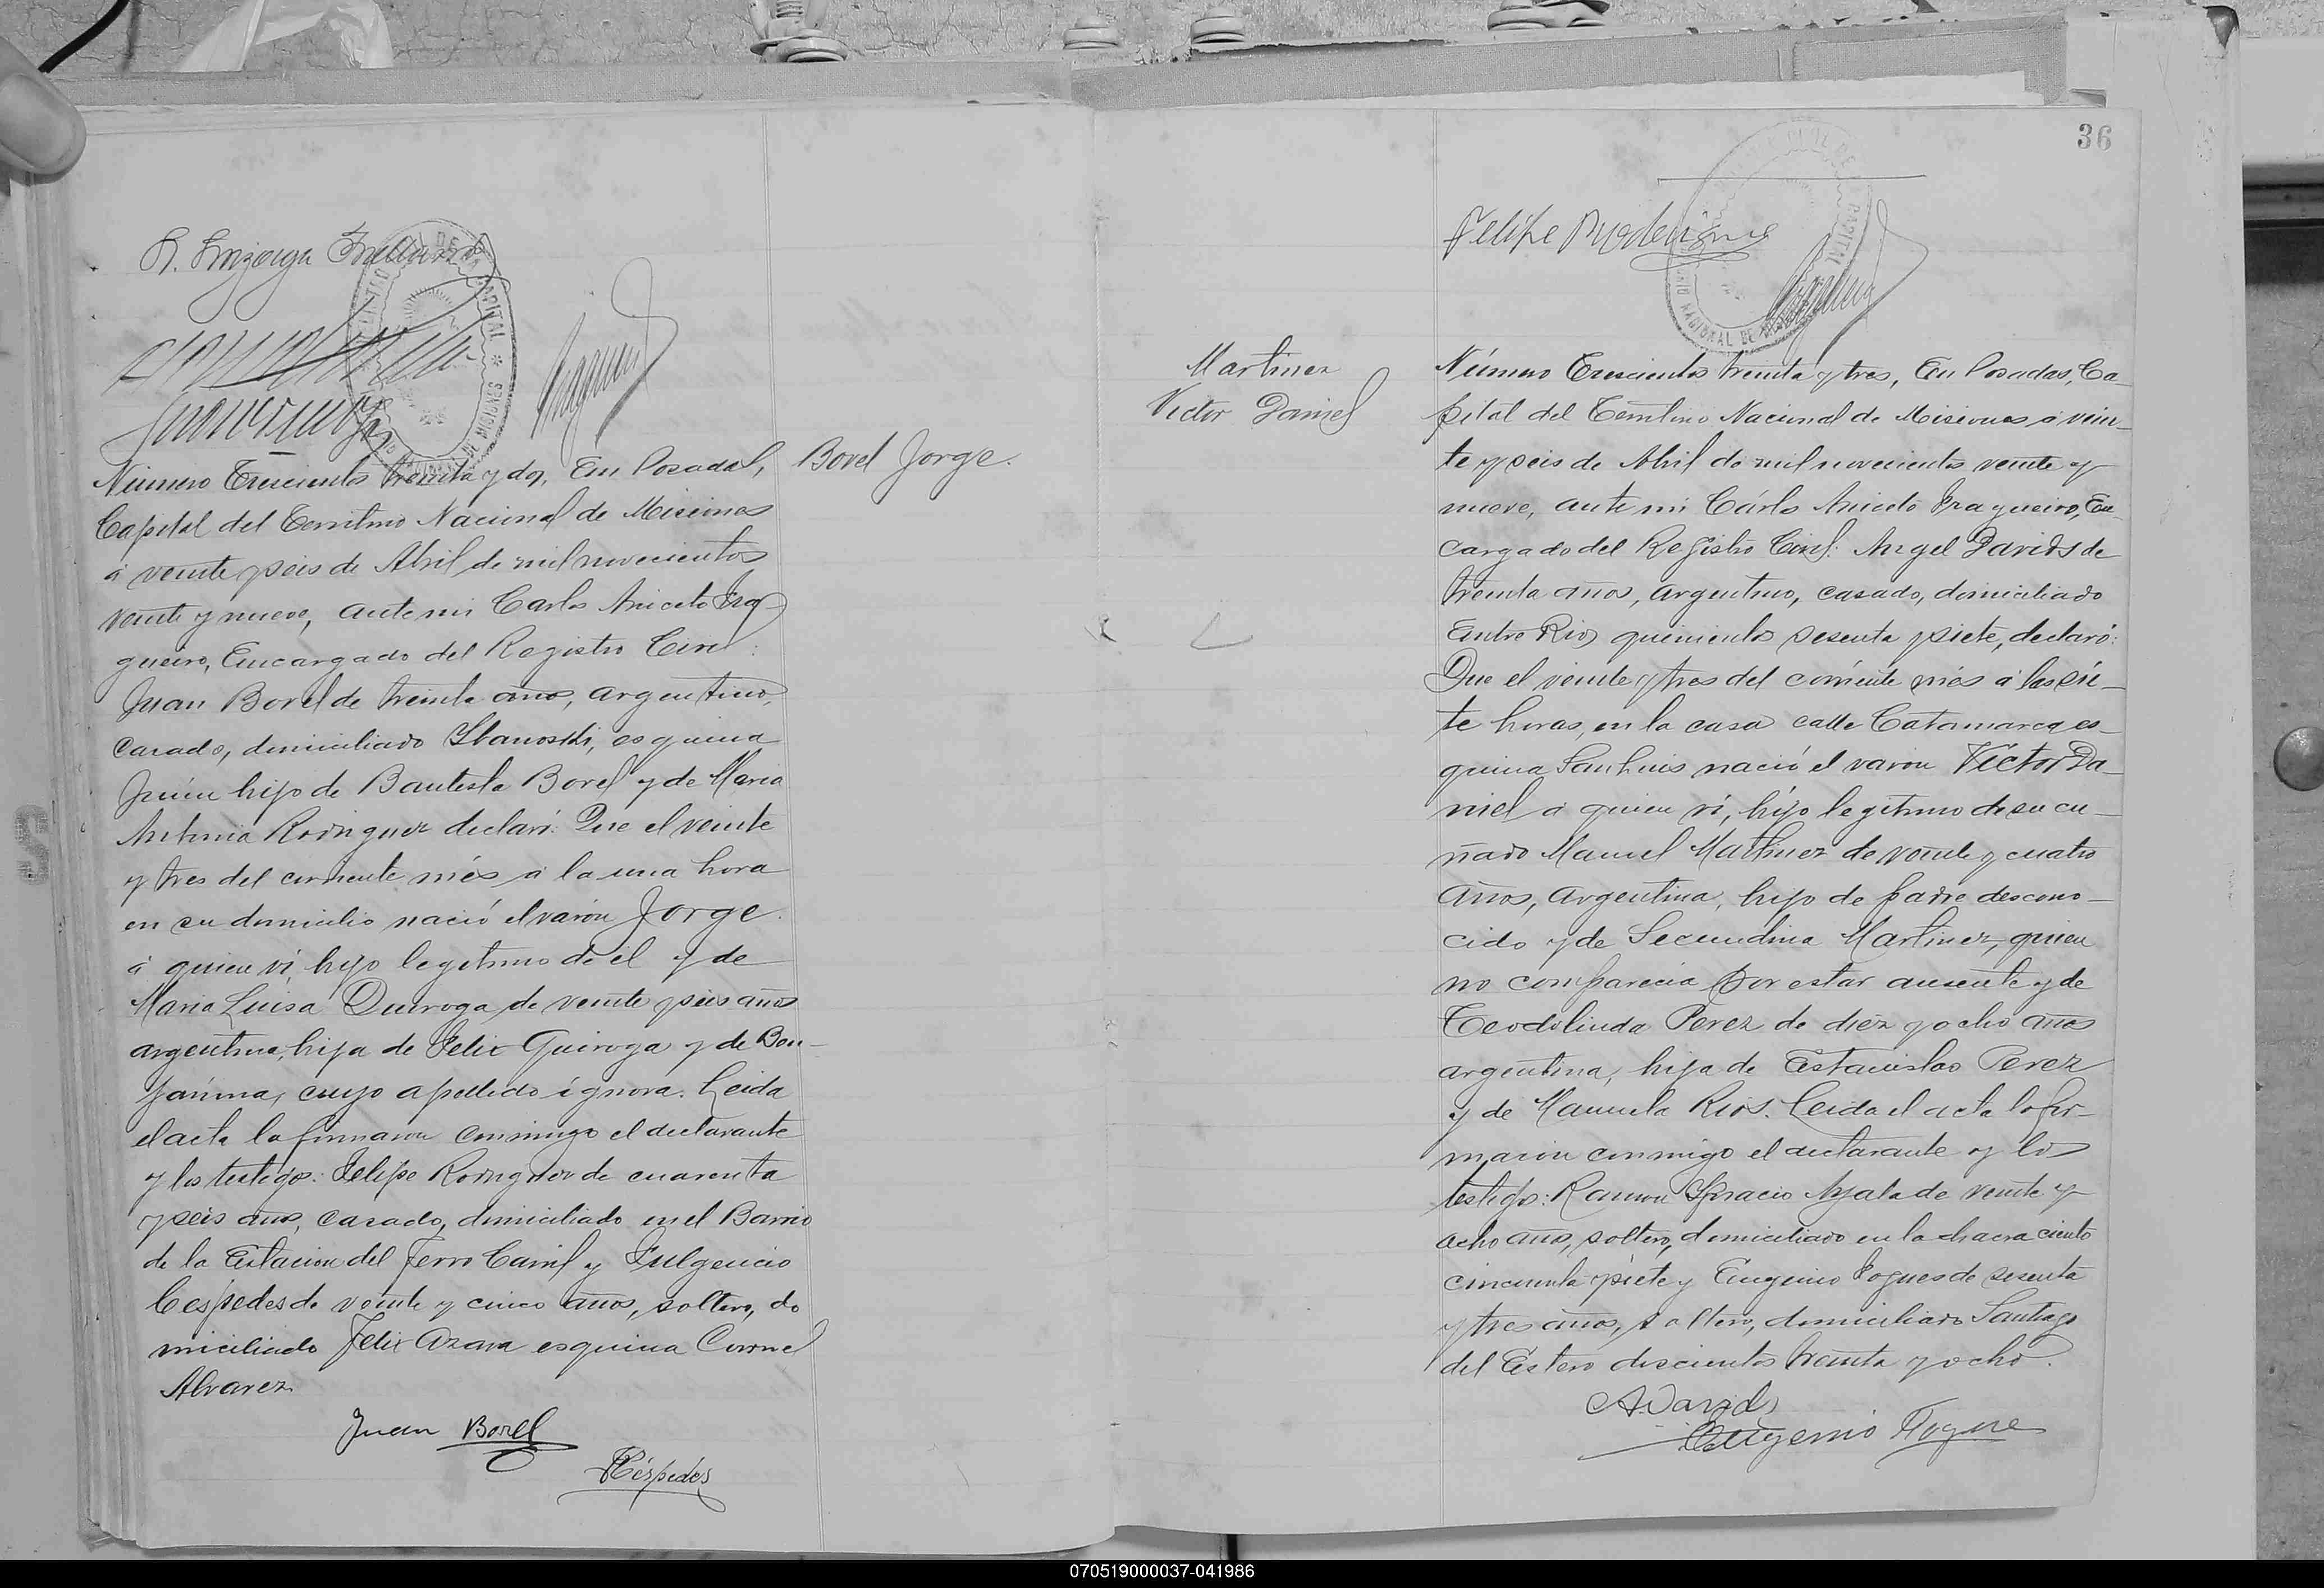 Número Trescientos treinta y dos, En Posadas,
Capital del Territorio Nacional de Misiones
á veinte y seis de Abril de mil novecientos
veinte y nueve, ante mi Carlos Aniceto Fra
gueiro, Encargado del Registro Civil:
Juan Borel de treinta años, argentino,
casado, domiciliado esquina
Junin hijo de Bautista Borel y de Maria
Antonia Rodriguez declaró: Que el veinte
y tres del corriente més á la una hora
en su domicilio nació el varón Jorge
á quien ví, hijo legítimo de él y de
Maria Luisa Quiroga de veinte y seis años
argentina, hija de Felix Quiroga y de Ben-
jamina, cuyo apellido ignora. Leida
el acta la firmaron conmigo el declarante
y los testigos: Felipe Rodriguez de cuarenta
y seis años, casado, domiciliado en el Barrio
de la Estacion del Ferro Carril y Fulgencio
Céspedes de veinte y cinco años, soltero, do
miciliado Felix Azara esquina Coronel
Alvarez
Juan Borel
Céspedes
Borel Jorge.
36
Felipe Rodriguez
Martinez
Victor Daniel
Número Trescientos treinta y tres, En Posadas, Ca-
pital del Territorio Nacional de Misiones á vein-
te y seis de Abril de mil novecientos veinte y
nueve, ante mi Cárlos Aniceto Fragueiro, En-
cargado del Registro Civil: Angel Davids de
treinta años, argentino, casado, domiciliado
Entre Rios quinientos sesenta y siete, declaró:
Que el veinte y tres del corriente més á las sie-
te horas, en la casa calle Catamarca es-
quina San Luis nació el varon Víctor Da-
niel á quien ví, hijo legítimo de su cu-
ñado Manuel Martinez de veinte y cuatro
años, argentino, hijo de padre descono-
cido y de Secundina Martinez, quien
no comparecia por estar ausente y de
Teodolinda Perez de diez y ocho años
argentina, hija de Estanislao Perez
y de Manuela Rios. Leida el acta la fir-
maron conmigo el declarante y los
testigos: Ramon Ignacio Ayala de veinte y
ocho años, soltero, domiciliado en la chacra ciento
cincuenta y siete y Eugenio Fogues de sesenta
y tres años, soltero, domiciliado Santiago
del Estero doscientos treinta y ocho.
A Davids
Eugenio Fogue
070519000037-041986